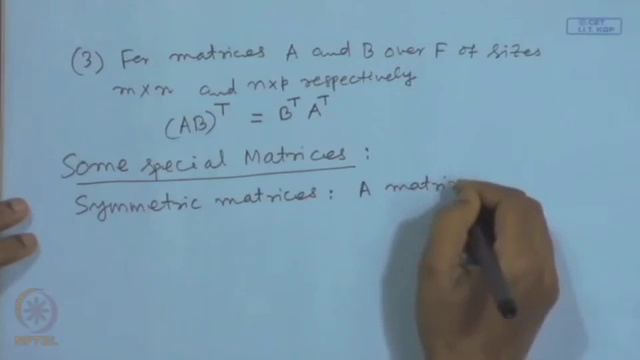 © CET
I.I.T. KGP
(3) For matrices A and B over F of sizes
m×n and n×p respectively
(AB)^T = B^T A^T
Some special Matrices :
Symmetric matrices : A matri
NPTEL